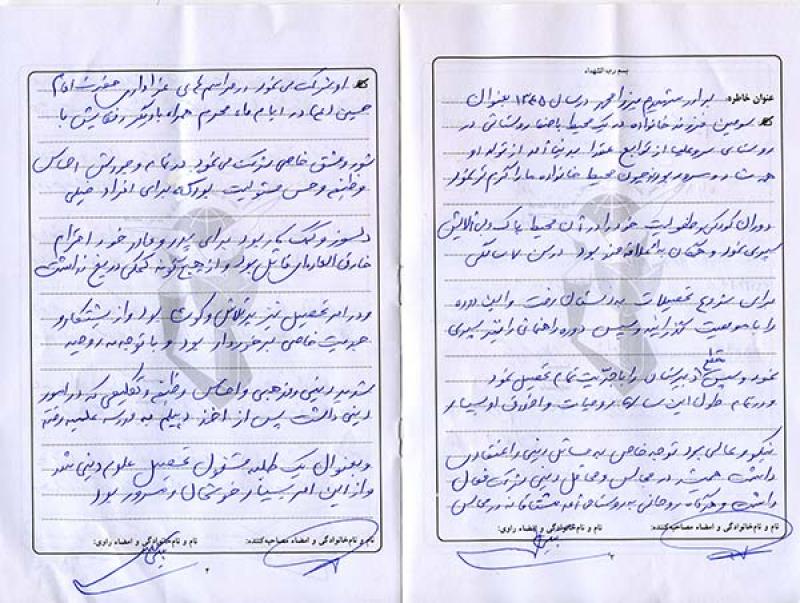 بسم رب الشهداء
عنوان خاطره: برادر شهیدم میرزا محمد در سال ۱۳۴۵ بعنوان
سومین فرزند خانواده در یک محیط باصفا روستائی در
روستای از توابع بدنیا آمد از تولد او
همه شاد و مسرور بودند چون محیط خانواده ما را گرم تر نمود
دوران کودکی و طفولیت خود را در آن محیط پاک و بی آلایش
سپری نمود و همگان به علاقه مند بود در سن ۷ سالگی
برای شروع تحصیلات به دبستان رفت و این دوره
را با موفقیت گذرانید و سپس دوره راهنمائی را نیز سپری
نمود و سپس مقطع دبیرستان را با جدیت تمام تحصیل نمود
و در تمام طول این سالها روحیات و اخلاق او بسیار
نیکو و عالی بود توجه خاص به مسائل دینی و اعتقادی
داشت همیشه در مجالس و محافل دینی شرکت فعال
داشت و هرگاه روحانی به روستا می آمد مشتاقانه در مجالس
نام و نام خانوادگی و امضاء مصاحبه کننده:
نام و نام خانوادگی و امضاء راوی:
۲
او شرکت می نمود در مراسم های عزاداری حضرت امام
حسین (ع) در ایام ماه محرم همراه با دیگر رفقایش با
شور و عشق خاصی شرکت می نمود در تمام وجودش احساس
وظیفه و حس مسئولیت بود که برای افراد خیلی
دلسوز و کمک کار بود برای پدر و مادر خود احترام
خارق العاده ای قائل بود و از هیچ گونه کمکی دریغ نداشت
و در امر تحصیل نیز پرتلاش و کوشا بود و از پشتکار و
جدیت خاصی برخوردار بود و با توجه به روحیه
شدید دینی و مذهبی و احساس وظیفه و تکلیفی که در امور
دینی داشت پس از اخذ دیپلم به مدرسه علمیه رفته
و بعنوان یک طلبه مشغول تحصیل علوم دینی شد
و از این امر بسیار خوشحال و مسرور بود
نام و نام خانوادگی و امضاء مصاحبه کننده:
نام و نام خانوادگی و امضاء راوی:
۳